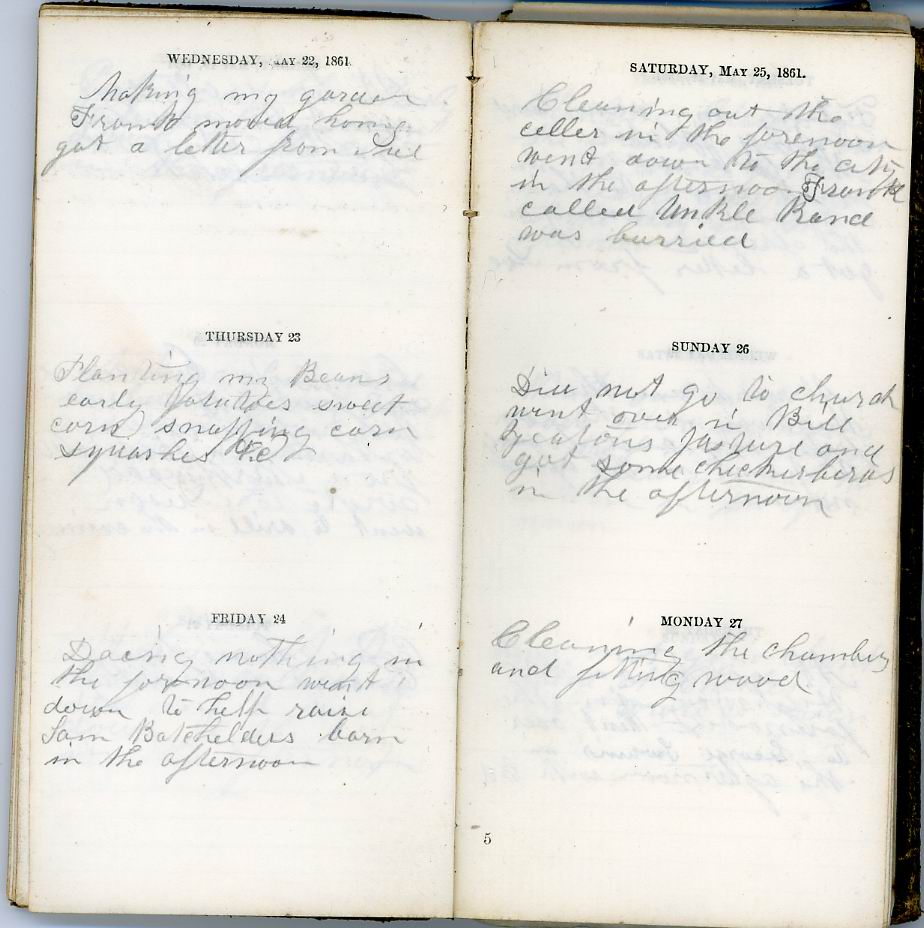 WEDNESDAY, MAY 22, 1861.
Making my garden
Frank moved home
got a letter from
THURSDAY 23
Planting my Beans
early potatoes sweet
corn snapping corn
squashes &c
FRIDAY 24
Doeing nothing in
the forenoon went
down to help raise
Sam Batchelders barn
in the afternoon
SATURDAY, MAY 25, 1861.
Cleaning out the
celler in the forenoon
went down to the city
in the afternoon Frank
called Unkle Rand
was burried
SUNDAY 26
Did not go to church
went over in Bill
Yeatons pasture and
got some checkerberas
in the afternoon
MONDAY 27
Cleaning the chamber
and fitting wood
5